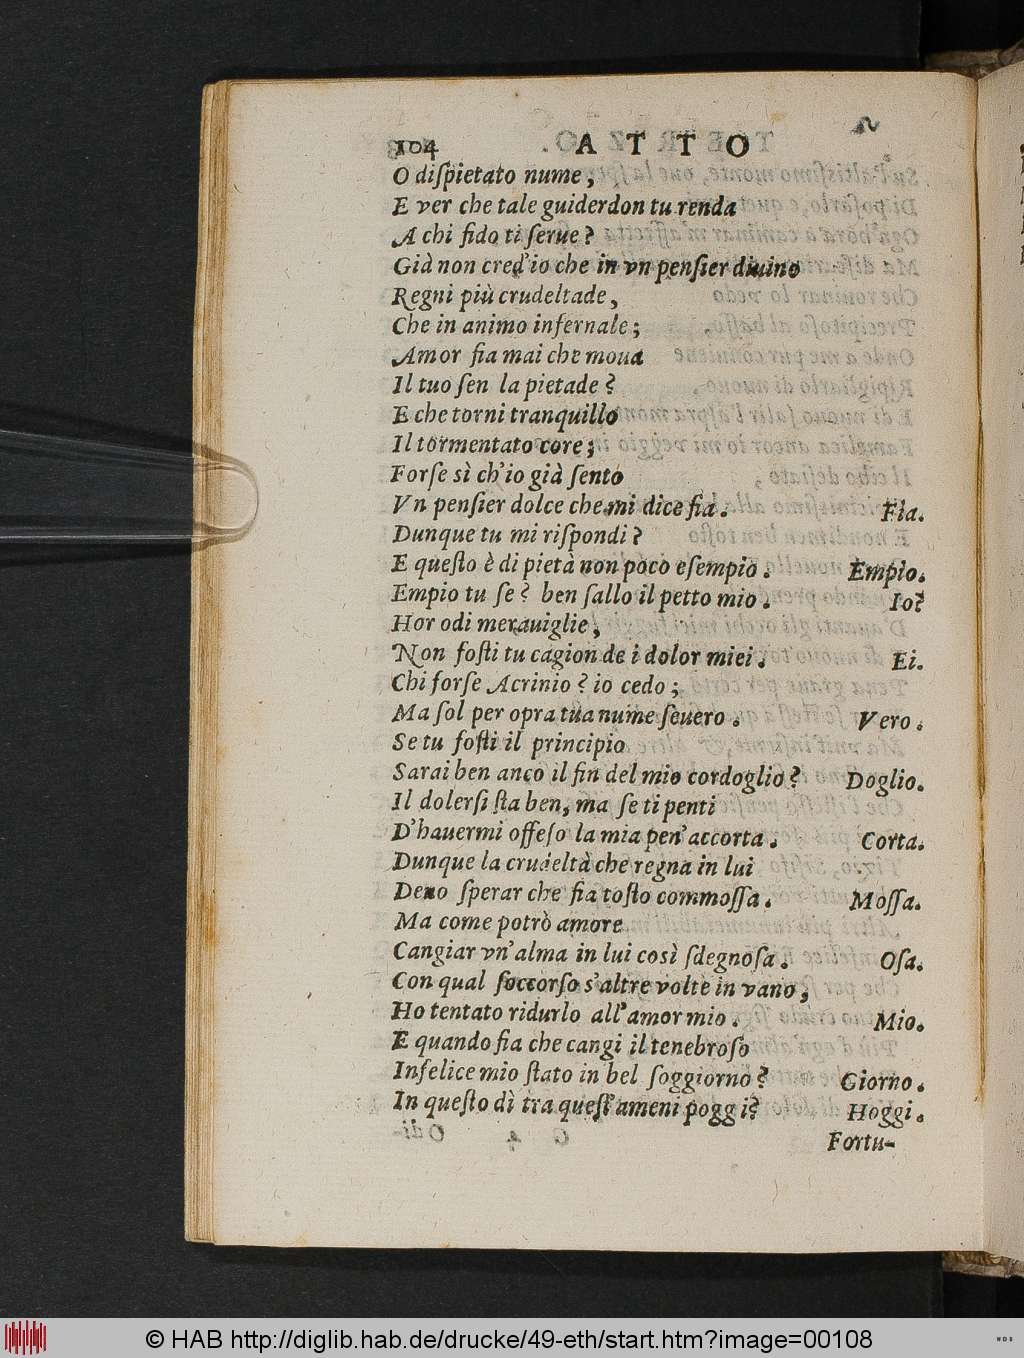 104 ATTO
O diſpietato nume,
E ver che tale guiderdon tu renda
A chi fido ti ſerue?
Già non cred'io che in vn penſier diuino
Regni più crudeltade,
Che in animo infernale;
Amor fia mai che moua
Il tuo ſen la pietade?
E che torni tranquillo
Il tormentato core;
Forſe sì ch'io già ſento
Vn penſier dolce che mi dice fia. Fia.
Dunque tu mi riſpondi?
E queſto è di pietà non poco eſempio. Empio.
Empio tu ſe? ben ſallo il petto mio. Io?
Hor odi merauiglie,
Non foſti tu cagion de i dolor miei. Ei.
Chi forſe Acrinio? io cedo;
Ma ſol per opra tua nume ſeuero. Vero.
Se tu foſti il principio
Sarai ben anco il fin del mio cordoglio? Doglio.
Il dolerſi ſta ben, ma ſe ti penti
D'hauermi offeſo la mia pen'accorta. Corta.
Dunque la crudeltà che regna in lui
Deuo ſperar che fia toſto commoſſa. Moſſa.
Ma come potrò amore
Cangiar vn'alma in lui così ſdegnoſa. Oſa.
Con qual ſoccorſo s'altre volte in vano,
Ho tentato ridurlo all'amor mio. Mio.
E quando fia che cangi il tenebroſo
Infelice mio ſtato in bel ſoggiorno? Giorno.
In queſto dì tra queſt'ameni poggi? Hoggi.
Fortu-
© HAB http://diglib.hab.de/drucke/49-eth/start.htm?image=00108